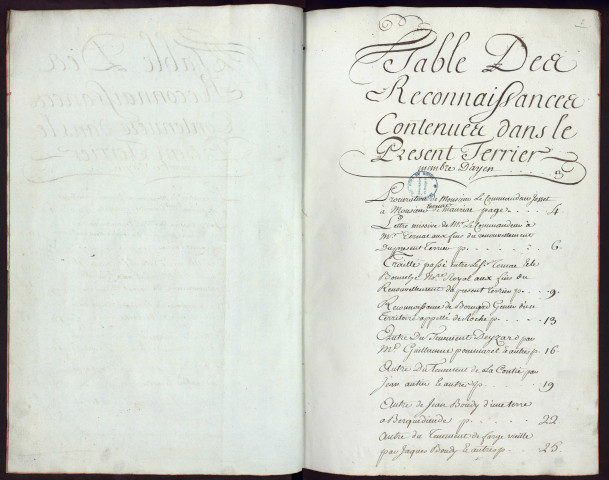 2
Table Des
Reconnaissances
Contenues dans le
Present Terrier
membre Dayen 3
Procuration de Monsieur Le Commandeur
a Monsieur Mauriac page 4
Lettre missive de Mr. Le Commandeur a
Mr. Tornac aux fins du renouvellement
Du present terrier p. 6
Traitte passé entre le Sr. Tornac et le
No.re Royal aux fins du
Renouvellement du present terrier p. 9
Reconnoissance de Bernard d'un
territoire appellé de Roche p. 13
Autre Du Tenement Deyrard par
Me. Guillaume et autres p. 16
Autre Du Tenement de La Contie par
Jean et autres p. 19
Autre de Jean Boudy d'une terre
a Berquedaude p. 22
Autre du Tenement de
par Jaques Boudy et autres p. 25